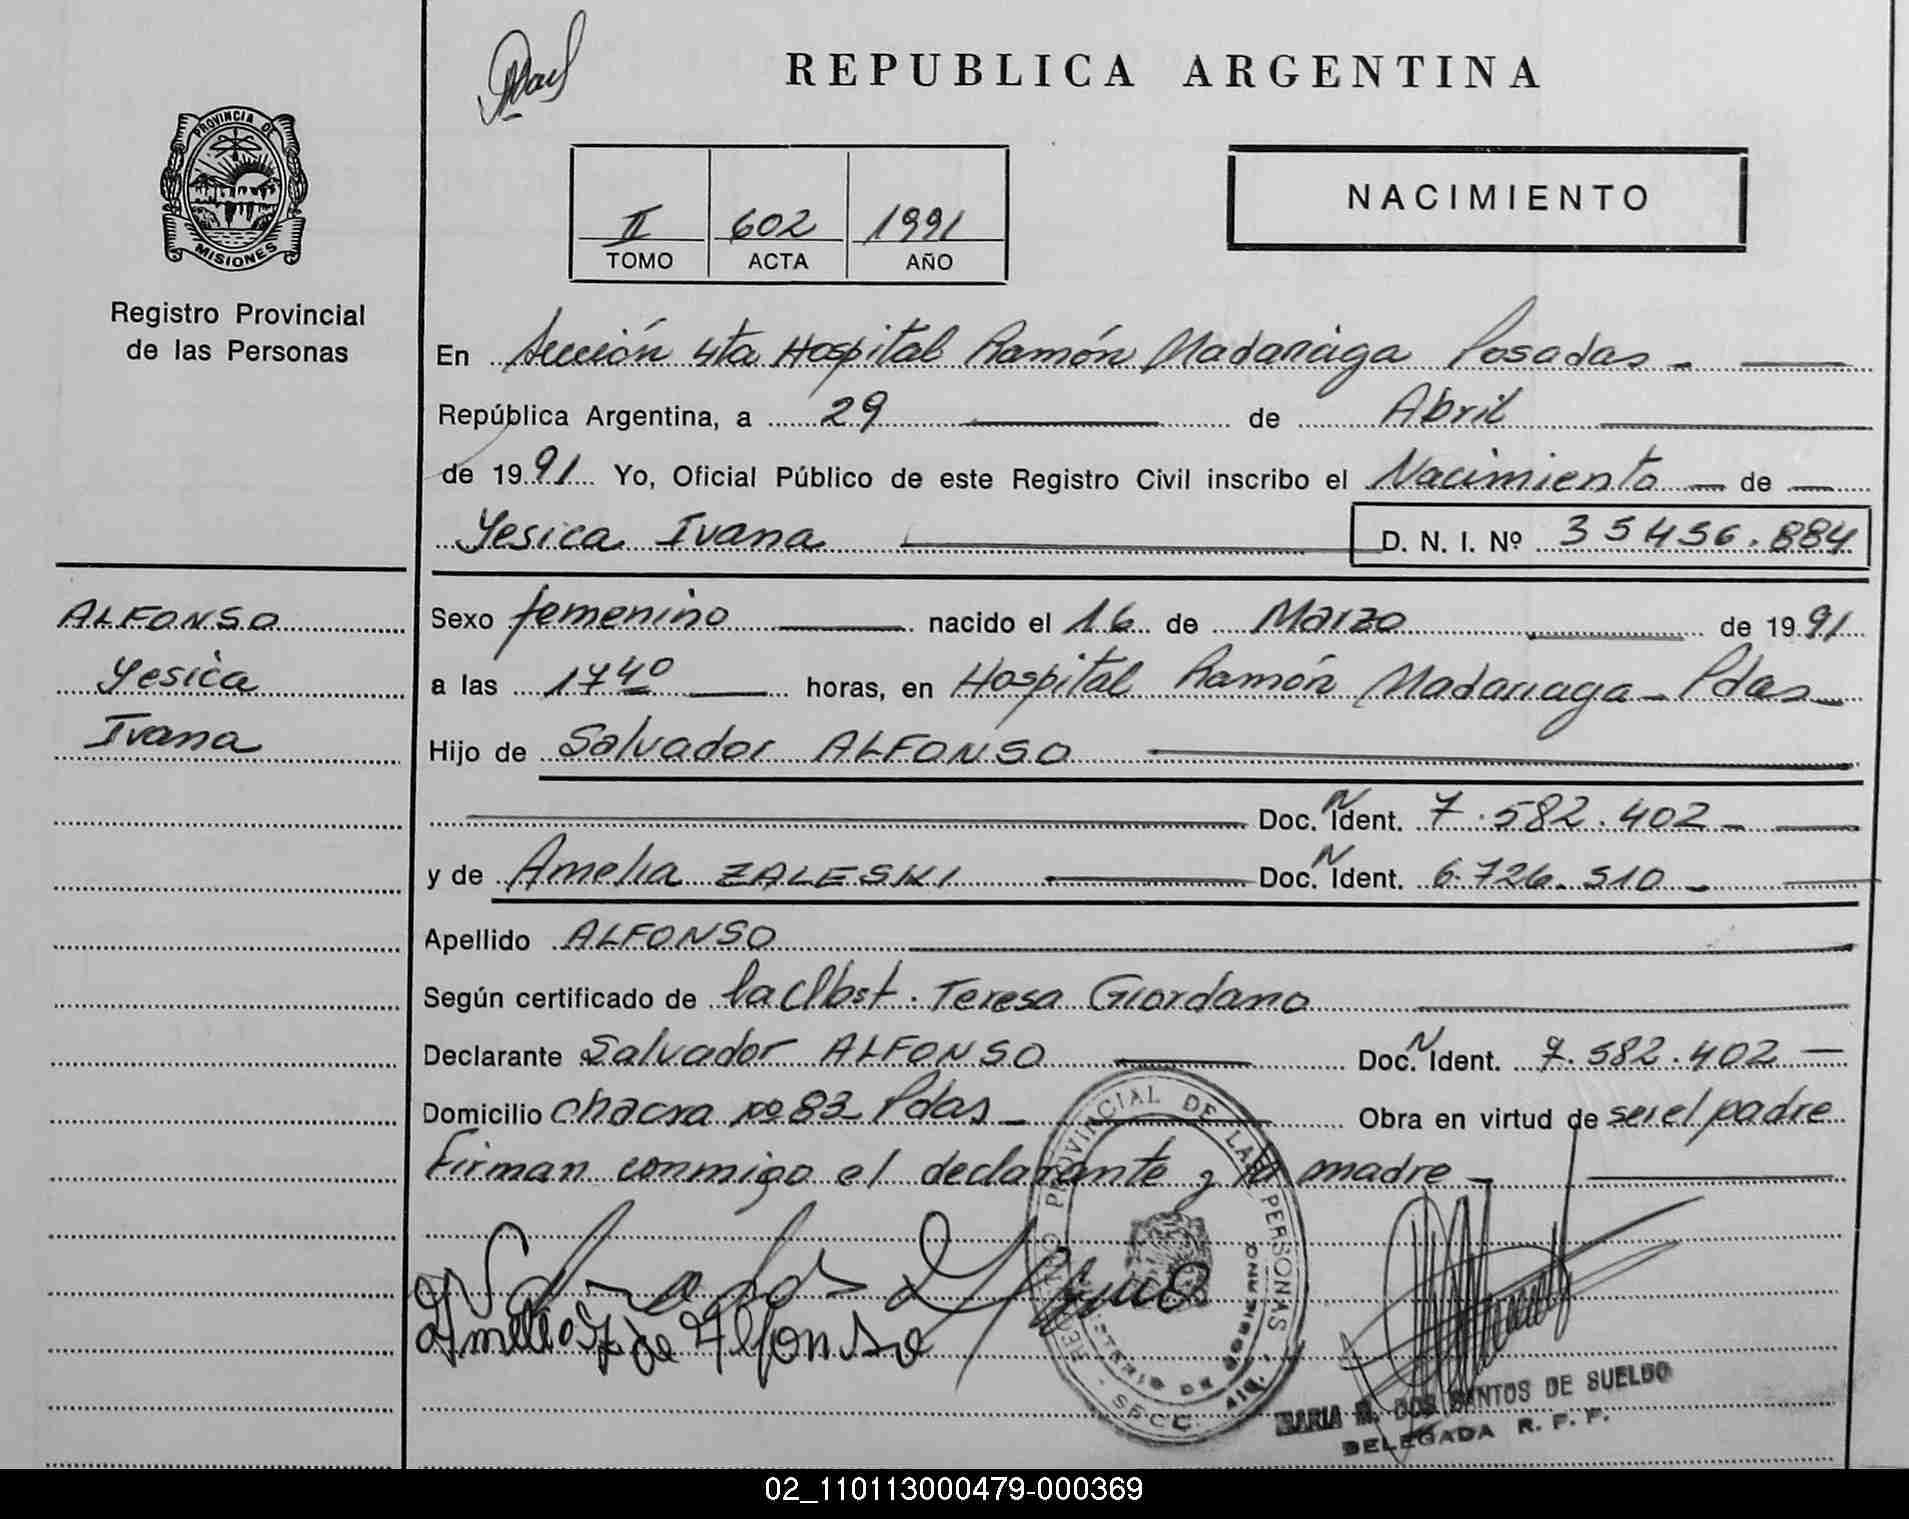 REPUBLICA ARGENTINA
PROVINCIA DE
MISIONES
Registro Provincial
de las Personas
II 602 1991
TOMO ACTA AÑO
NACIMIENTO
En Sección 4ta Hospital Ramón Madariaga Posadas -
República Argentina, a 29 de Abril
de 1991 Yo, Oficial Público de este Registro Civil inscribo el Nacimiento - de -
Yesica Ivana D. N. I. Nº 35456.884
ALFONSO
Yesica
Ivana
Sexo femenino nacido el 16 de Marzo de 1991
a las 17 40 horas, en Hospital Ramón Madariaga - Pdas -
Hijo de Salvador ALFONSO
Doc. N Ident. 7.582.402 -
y de Amelia ZALESKI Doc. N Ident. 6.726.510 -
Apellido ALFONSO
Según certificado de la Obst. Teresa Giordano
Declarante Salvador ALFONSO Doc. N Ident. 7.582.402 -
Domicilio chacra nº 83 Pdas - Obra en virtud de ser el padre
Firman conmigo el declarante y la madre -
REGISTRO PROVINCIAL DE LAS PERSONAS
MINISTERIO DE GOBIERNO
Amelia Z de Alfonso
MARIA DOS SANTOS DE SUELDO
DELEGADA R. P. P.
02_110113000479-000369